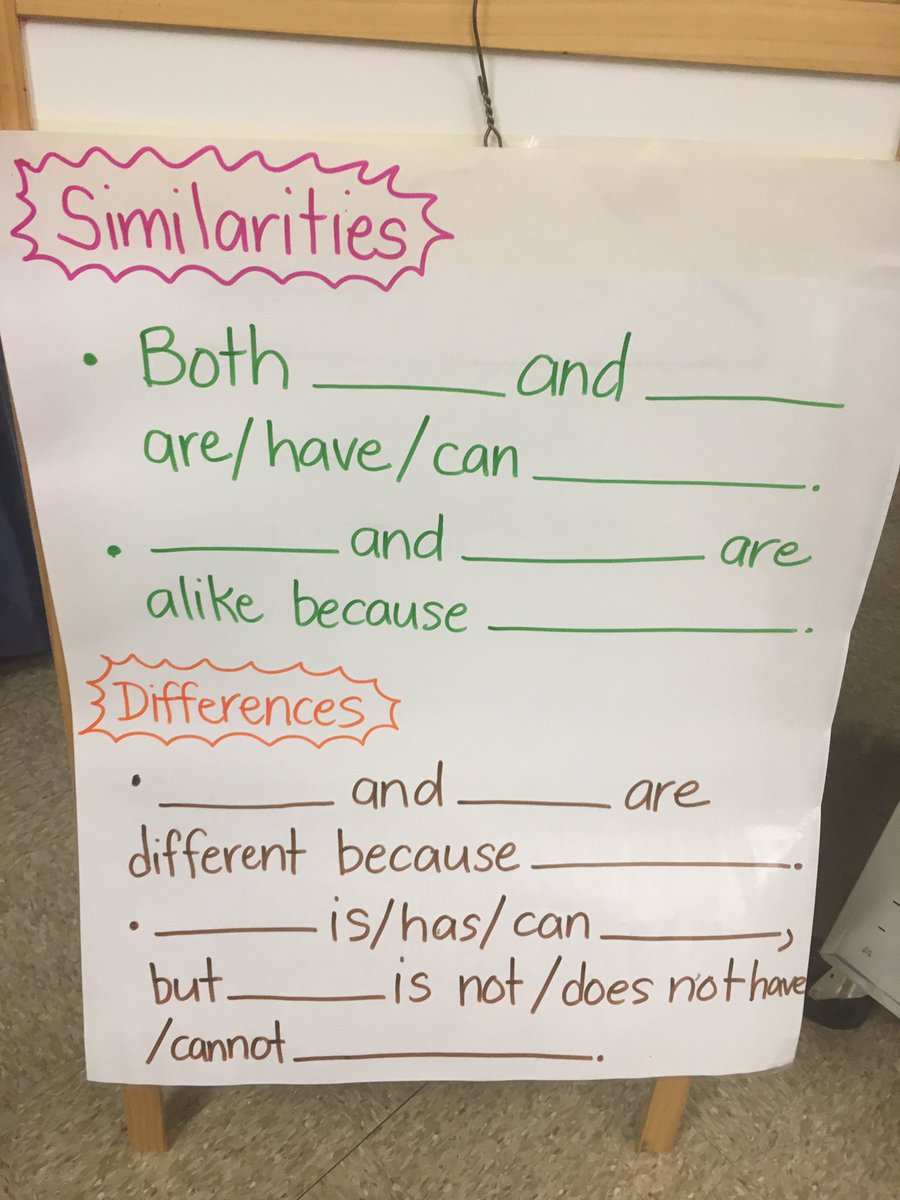 Similarities
• Both ______ and ______
are/have/can ______.
• ______ and ______ are
alike because ______.
Differences
• ______ and ______ are
different because ______.
• ______ is/has/can ______,
but ______ is not/does not have
/cannot ______.